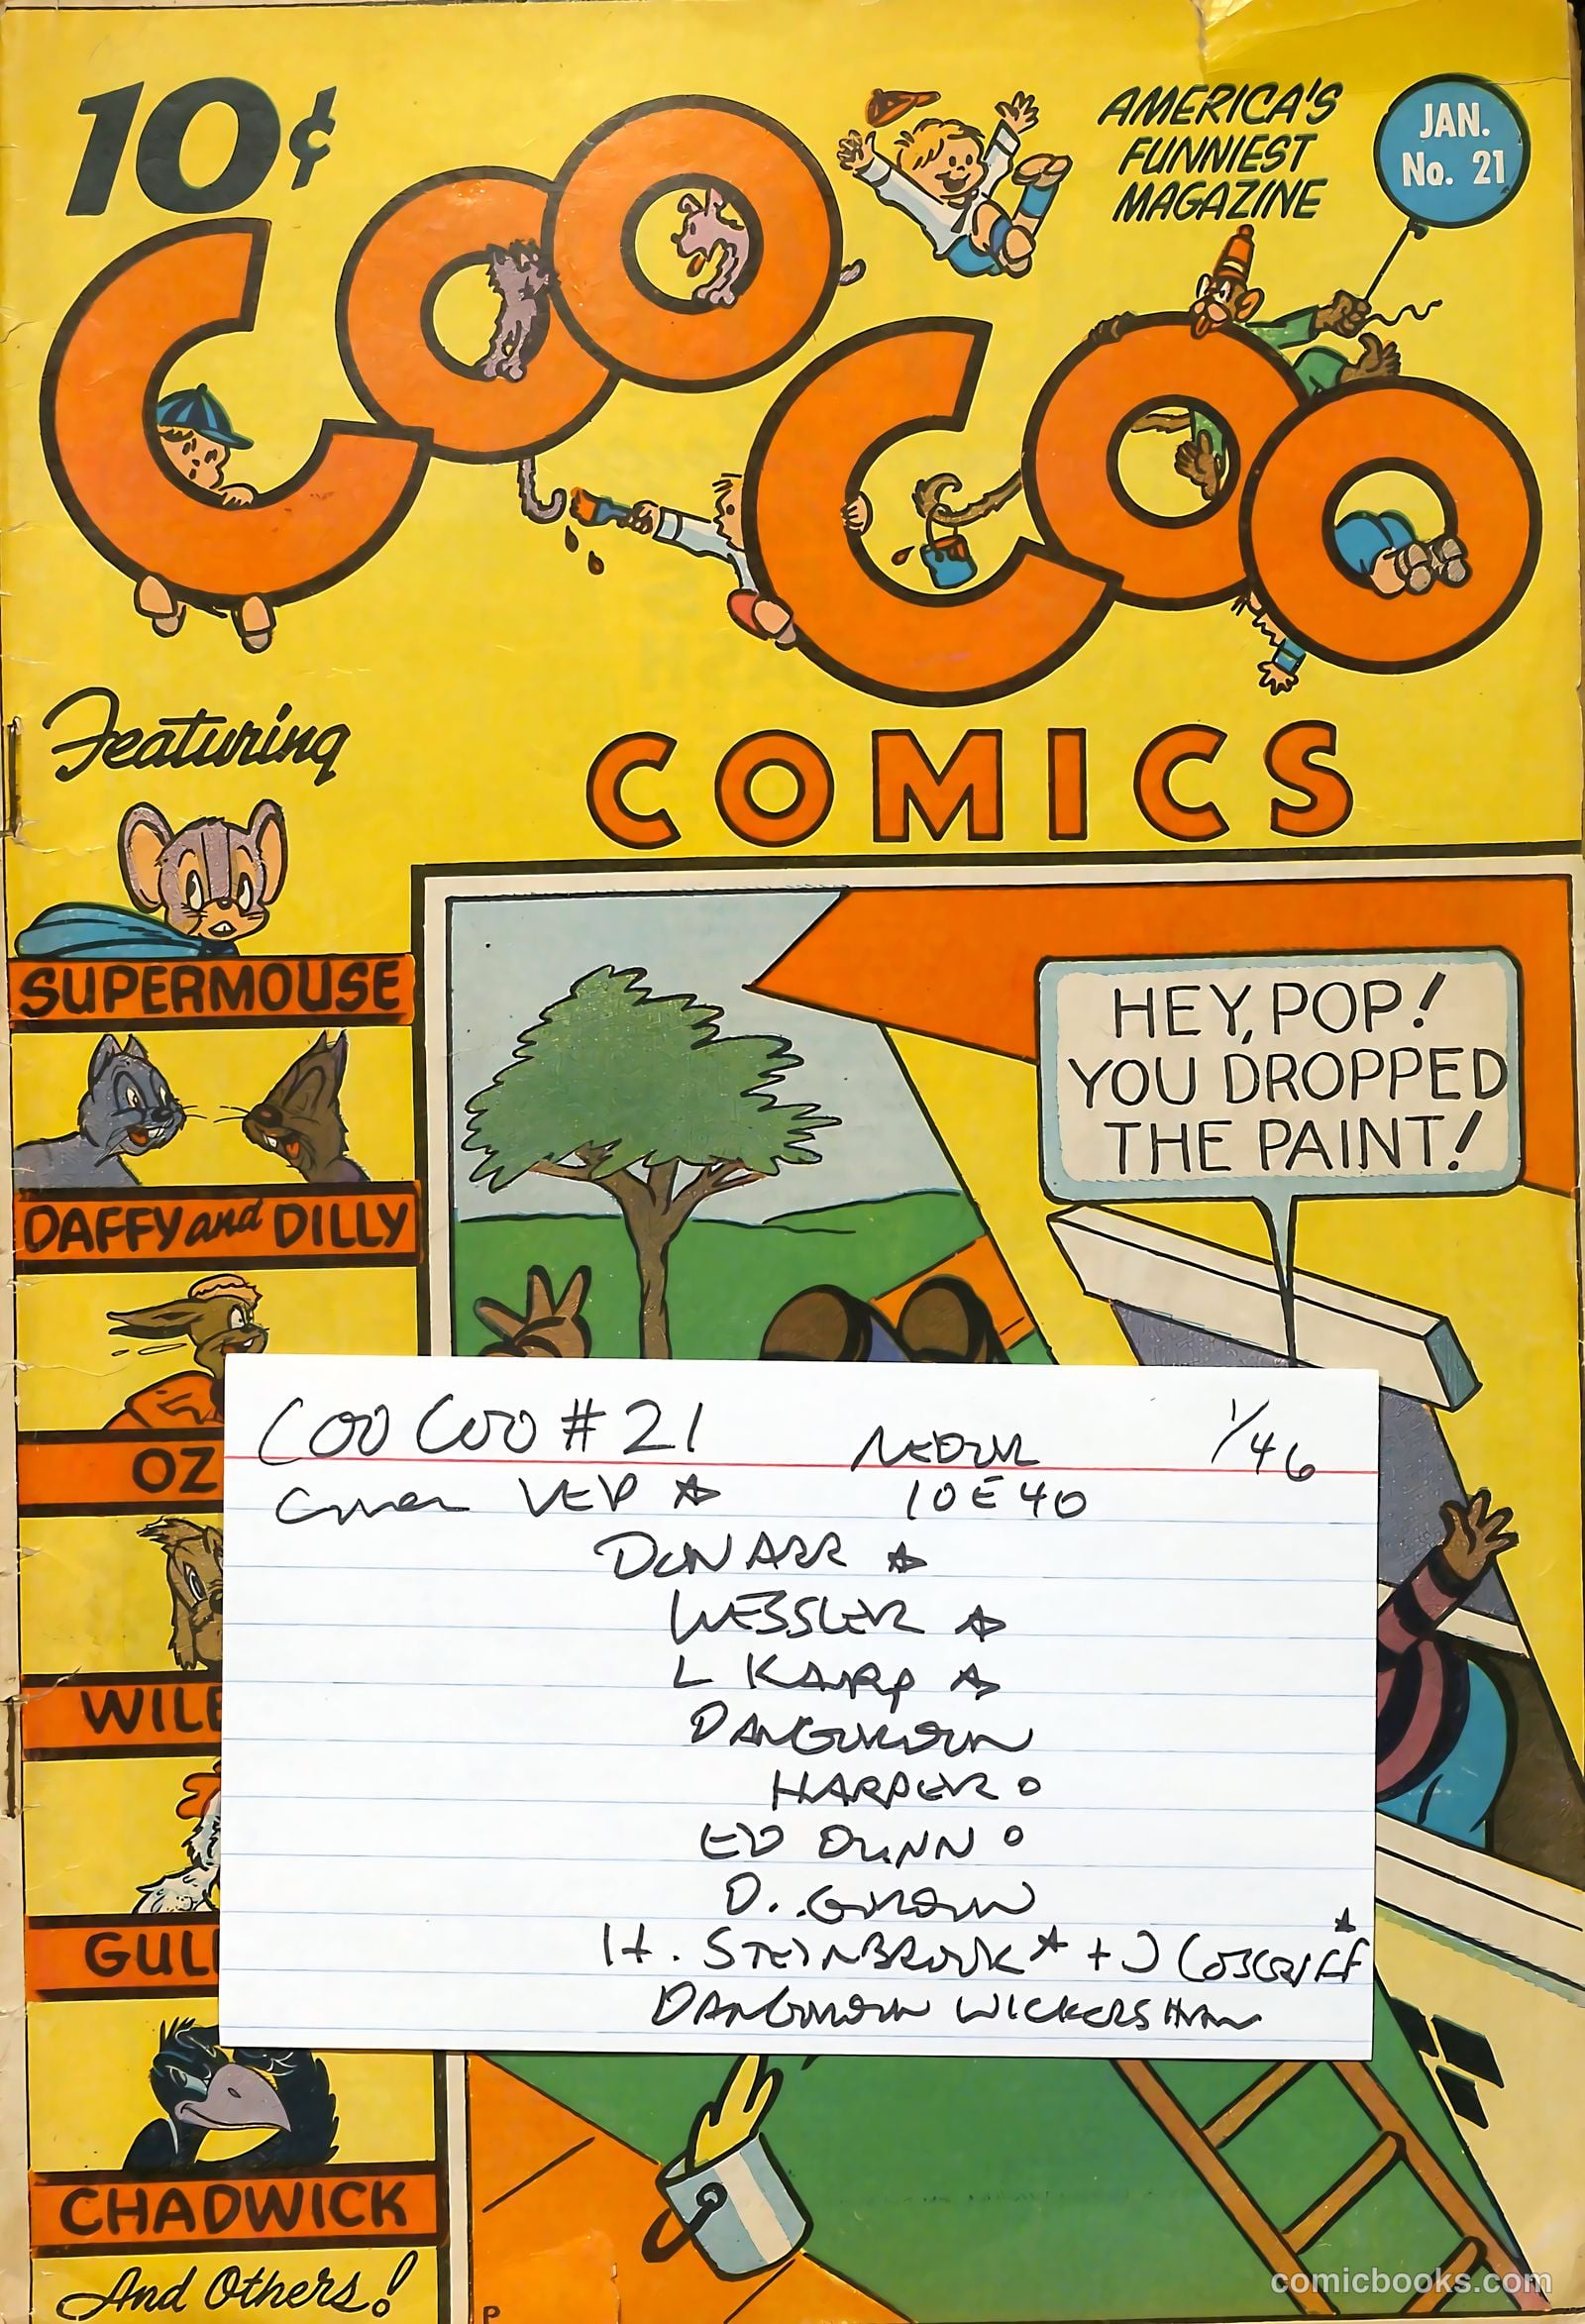 10¢
COO COO
AMERICA'S
FUNNIEST
MAGAZINE
JAN.
No. 21
COMICS
Featuring
SUPERMOUSE
DAFFY and DILLY
OZ
WILB
GUL
CHADWICK
And Others!
HEY, POP!
YOU DROPPED
THE PAINT!
COO COO #21 NEDOR 1/46
Cover VEP ☆ 10E40
DON ARR ☆
WESSLER ☆
L KARP ☆
DAN GORDON
HARPER o
ED DUNN o
D. GORDON
H. STEINBROOK ☆ + J COSGRIFF ☆
DAN GORDON WICKERSHAM
P
comicbooks.com